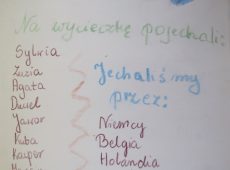 Na wycieczkę pojechali:
Sylwia
Zuzia
Agata
Daniel
Jawor
Kuba
Kacper
Jechaliśmy
przez:
Niemcy
Belgia
Holandia